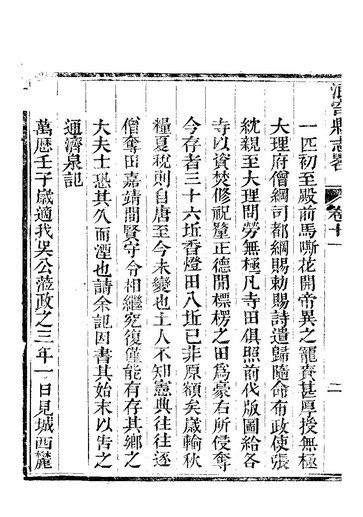 浪穹縣志畧 卷十一
一匹初至殿前馬嘶花開帝異之寵賚甚厚授無極
大理府僧綱司都綱賜勅賜詩遣歸隨命布政使張
紞親至大理問勞無極凡寺田俱照前代版圖給各
寺以資焚修祝釐正德開標楞之田為豪右所侵奪
今存者三十六坵香燈田八坵已非原額矣歲輸秋
糧夏稅則自唐至今未變也土人不知憲典往往逐
僧奪田嘉靖間賢守令相繼究復僅能有存其鄉之
大夫士恐其久而湮也請余記因書其始末以告之
通濟泉記
萬歷壬子歲適我吳公蒞政之三年一日見城西麓